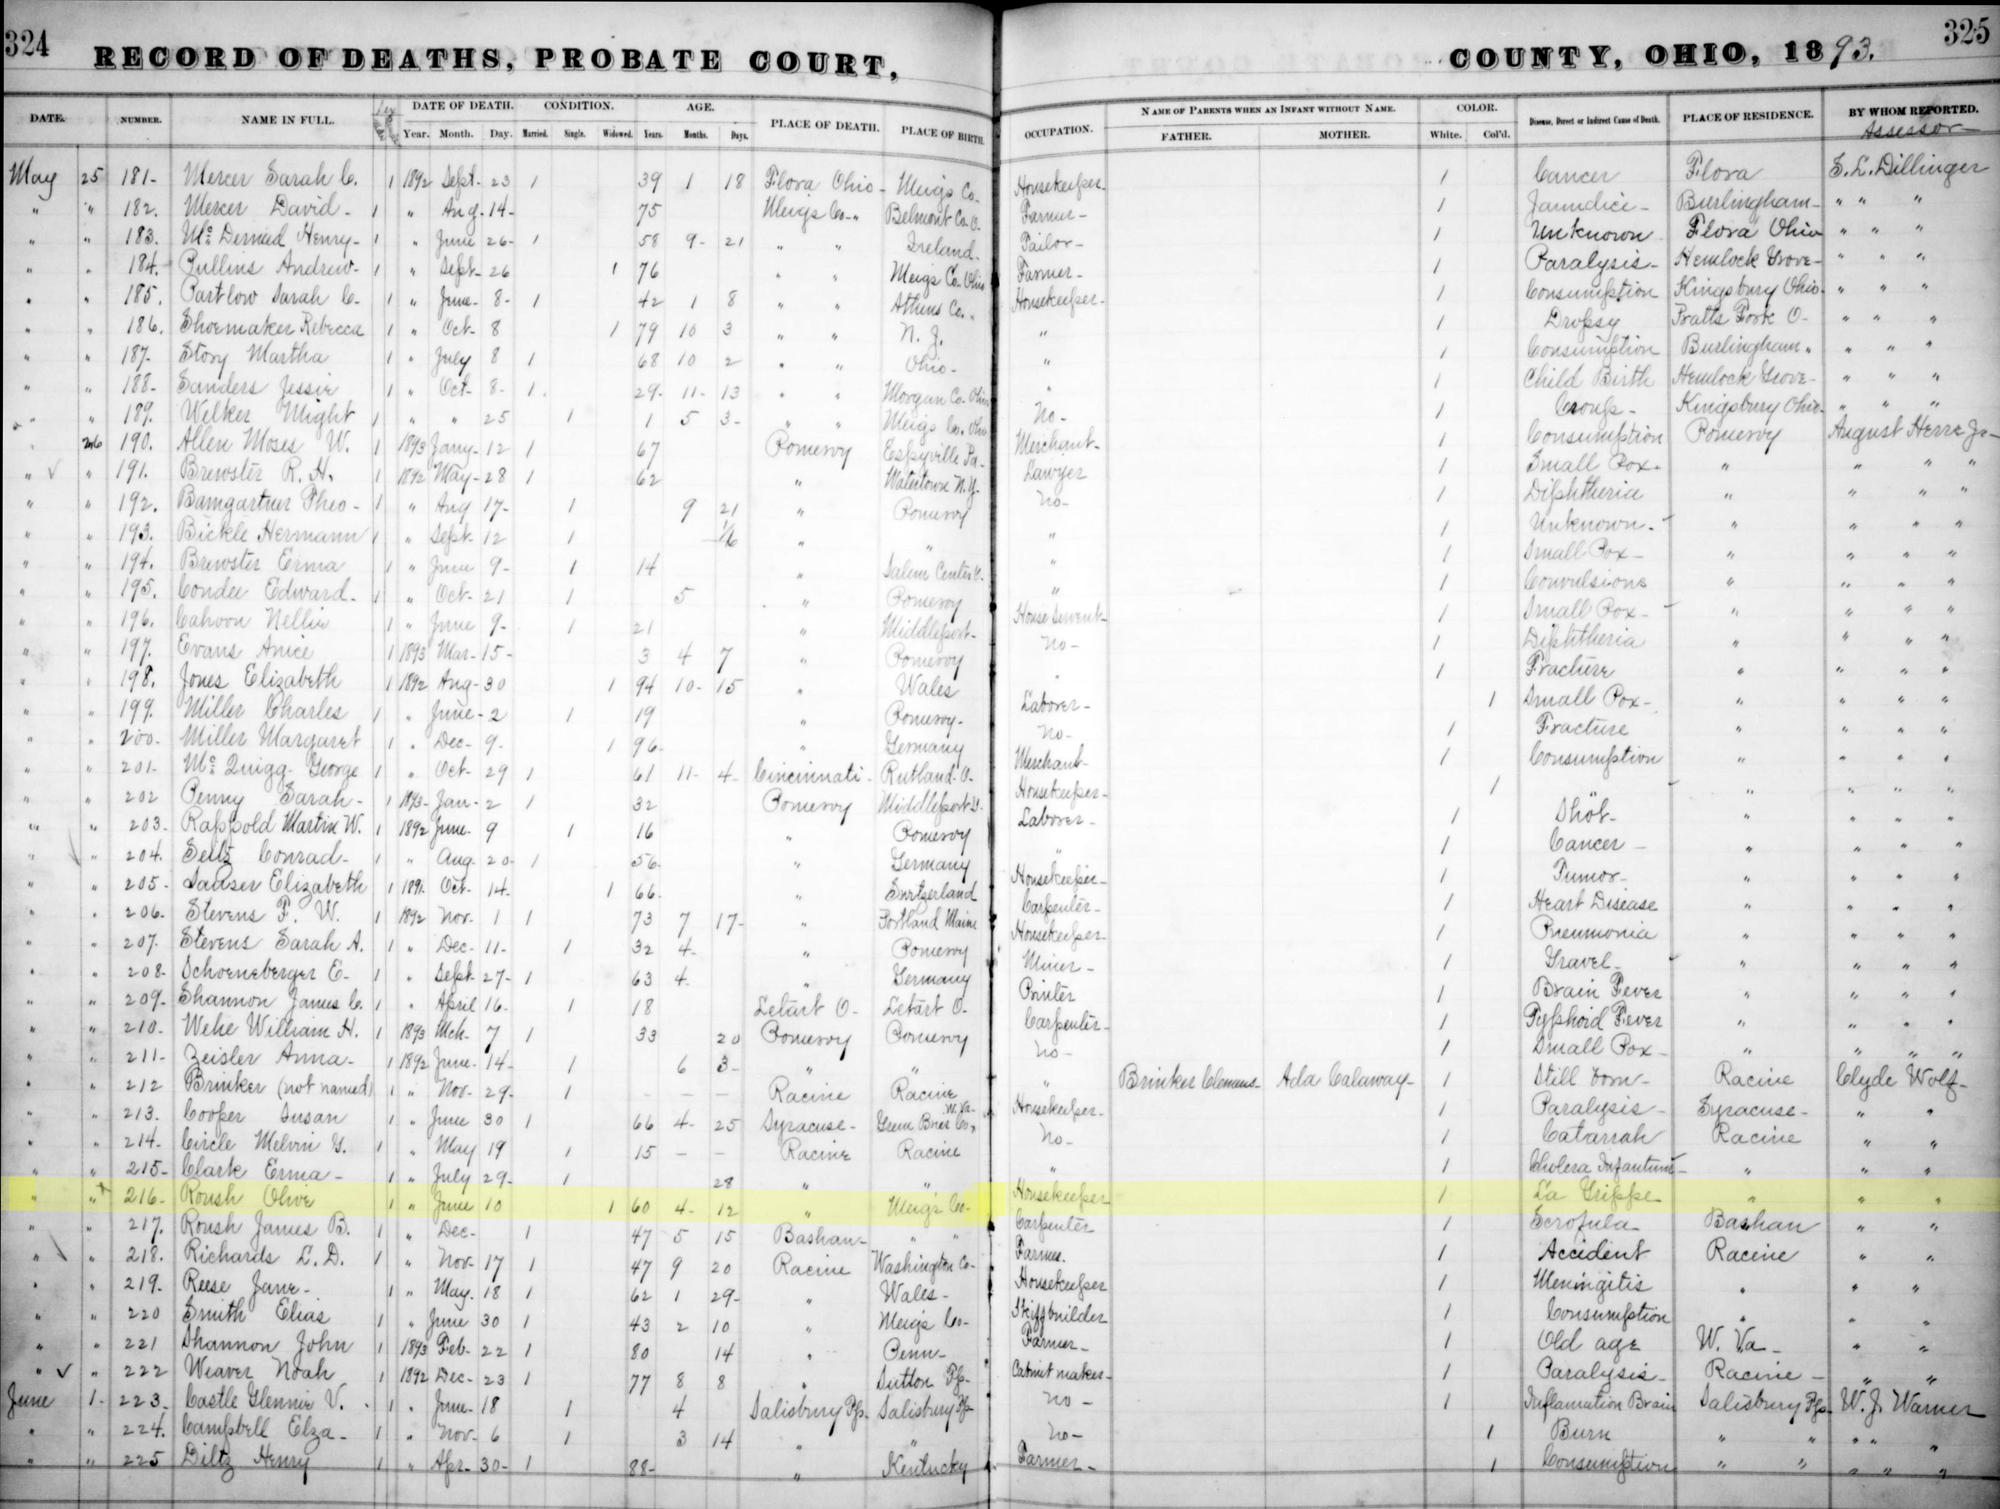 324
RECORD OF DEATHS, PROBATE COURT, COUNTY, OHIO, 1893.
325
DATE. NUMBER. NAME IN FULL. DATE OF DEATH. CONDITION. AGE. PLACE OF DEATH. PLACE OF BIRTH. OCCUPATION. NAME OF PARENTS WHEN AN INFANT WITHOUT NAME. COLOR. Disease, Direct or Indirect Cause of Death. PLACE OF RESIDENCE. BY WHOM REPORTED.
Year. Month. Day. Married. Single. Widowed. Years. Months. Days. FATHER. MOTHER. White. Col'd. Assessor
May 25 181- Mercer Sarah C. 1 1892 Sept- 23 1 39 1 18 Flora Ohio- Meigs Co- Housekeeper- 1 Cancer Flora S. L. Dillinger
" " 182. Mercer David- 1 " Aug- 14- 75 Meigs Co-" Belmont Co. O. Farmer- 1 Jaundice- Burlingham- " " "
" " 183. Mc Dermied Henry- 1 " June 26- 1 58 9- 21 " " Ireland- Tailor- 1 Unknown Flora Ohio " " "
" " 184. Pullins Andrew- 1 " Sept- 26 1 76 " " Meigs Co. Ohio Farmer- 1 Paralysis- Hemlock Grove- " " "
" " 185. Partlow Sarah C- 1 " June- 8- 1 42 1 8 " " Athens Co. " Housekeeper- 1 Consumption Kingsbury Ohio- " " "
" " 186. Shoemaker Rebecca 1 " Oct- 8 1 79 10 3 " " N. J. " 1 Dropsy Pratts Fork O- " " "
" " 187- Story Martha 1 " July 8 1 68 10 2 " " Ohio- " 1 Consumption Burlingham. " " "
" " 188- Sanders Jessie 1 " Oct- 8- 1. 29- 11- 13 " " Morgan Co. Ohio " 1 Child Birth Hemlock Grove- " " "
" " 189. Welker Might 1 " " 25 1 1 5 3- " " Meigs Co. Ohio No- 1 Croup- Kingsbury Ohio- " " "
" 26 190. Allen Moses W. 1 1893 Jany- 12 1 67 Pomeroy Espyville Pa- Merchant- 1 Consumption Pomeroy August Herre Jr-
" " 191. Brewster R. H. 1 1892 May- 28 1 62 " Watertown N.Y. Lawyer 1 Small Pox- " " " "
" " 192. Bamgartner Theo- 1 " Aug 17- 1 9 21 " Pomeroy No- 1 Diphtheria " " " "
" " 193. Bickle Hermann 1 " Sept- 12 1 1/6 " " " 1 Unknown- " " " "
" " 194. Brewster Erma 1 " June 9- 1 14 " Salem Center O. " 1 Small Pox- " " " "
" " 195. Condee Edward- 1 " Oct- 21 1 5 " Pomeroy " 1 Convulsions " " " "
" " 196. Cahoon Nellie 1 " June 9- 1 21 " Middleport- House Servent- 1 Small Pox- " " " "
" " 197. Evans Anice 1 1893 Mar- 15- 3 4 7 " Pomeroy No- 1 Diphtheria " " " "
" " 198. Jones Elizabeth 1 1892 Aug- 30 1 94 10- 15 " Wales " 1 Fracture " " " "
" " 199. Miller Charles 1 " June- 2 1 19 " Pomeroy- Laborer- 1 Small Pox- " " " "
" " 200. Miller Margaret 1 " Dec- 9- 1 96- " Germany No- 1 Fracture " " " "
" " 201- Mc Quigg- George 1 " Oct- 29 1 61 11- 4- Cincinnati- Rutland- O- Merchant- 1 Consumption " " " "
" " 202 Penny Sarah- 1 1893- Jan- 2 1 32 Pomeroy Middleport O. Housekeeper- 1 " " " "
" " 203- Rappold Martin W. 1 1892 June- 9 1 16 " Pomeroy Laborer- 1 Shot- " " " "
" " 204. Seitz Conrad- 1 " Aug- 20- 1 56- " Germany " 1 Cancer- " " " "
" " 205- Sauser Elizabeth 1 1891. Oct- 14- 1 66- " Switzerland Housekeeper- 1 Tumor- " " " "
" " 206- Stevens F. W. 1 1892 Nov- 1 1 73 7 17- " Portland Maine Carpenter- 1 Heart Disease " " " "
" " 207. Stevens Sarah A. 1 " Dec- 11- 1 32 4- " Pomeroy Housekeeper- 1 Pneumonia " " " "
" " 208- Schoeneberger E- 1 " Sept- 27- 1 63 4- " Germany Miner- 1 Gravel- " " " "
" " 209- Shannon James C. 1 " April 16- 1 18 Letart O- Letart O- Printer 1 Brain Fever " " " "
" " 210- Wehe William H. 1 1893 Mch- 7 1 33 20 Pomeroy Pomeroy Carpenter- 1 Typhoid Fever " " " "
" " 211- Zeisler Anna- 1 1892 June- 14- 1 6 3- " " No- 1 Small Pox- " " " "
" " 212 Brinker (not named) 1 " Nov- 29- 1 - - - Racine Racine " Brinker Clemans- Ada Calaway- 1 Still born- Racine Clyde Wolf-
" " 213. Cooper Susan 1 " June 30 1 66 4- 25 Syracuse- Green Brier Co, W. Va- Housekeeper- 1 Paralysis- Syracuse- " "
" " 214- Circle Melvin G. 1 " May 19 1 15 - - Racine Racine No- 1 Catarrah Racine " "
" " 215- Clark Erma- 1 " July 29- 1 28 " " " 1 Cholera Infantum- " " "
" " 216- Roush Olive 1 " June 10 1 60 4- 12 " Meigs Co- Housekeeper 1 La Grippe " " "
" " 217. Roush James B. 1 " Dec- 1 47 5 15 Bashan- " " Carpenter 1 Scrofula- Bashan " "
" " 218. Richards L. D. 1 " Nov- 17 1 47 9 20 Racine Washington Co- Farmer. 1 Accident Racine " "
" " 219. Reese Jane- 1 " May- 18 1 62 1 29- " Wales- Housekeeper 1 Meningitis " " "
" " 220 Smith Elias 1 " June 30 1 43 2 10 " Meigs Co- Skiffbuilder 1 Consumption " " "
" " 221 Shannon John 1 1893 Feb- 22 1 80 14 " Penn- Farmer- 1 Old age W. Va- " "
" " 222 Weaver Noah 1 1892 Dec- 23 1 77 8 8 " Sutton Tp- Cabinet maker- 1 Paralysis- Racine- " "
June 1- 223- Castle Glennie V. 1 " June- 18 1 4 Salisbury Tp. Salisbury Tp- No- 1 Inflamation Brain Salisbury Tp- W. J. Warner
" " 224. Campbell Elza- 1 " Nov- 6 1 3 14 " " No- 1 Burn " " " " "
" " 225 Diltz Henry 1 " Apr- 30- 1 88- " Kentucky Farmer- 1 Consumption " " " " "